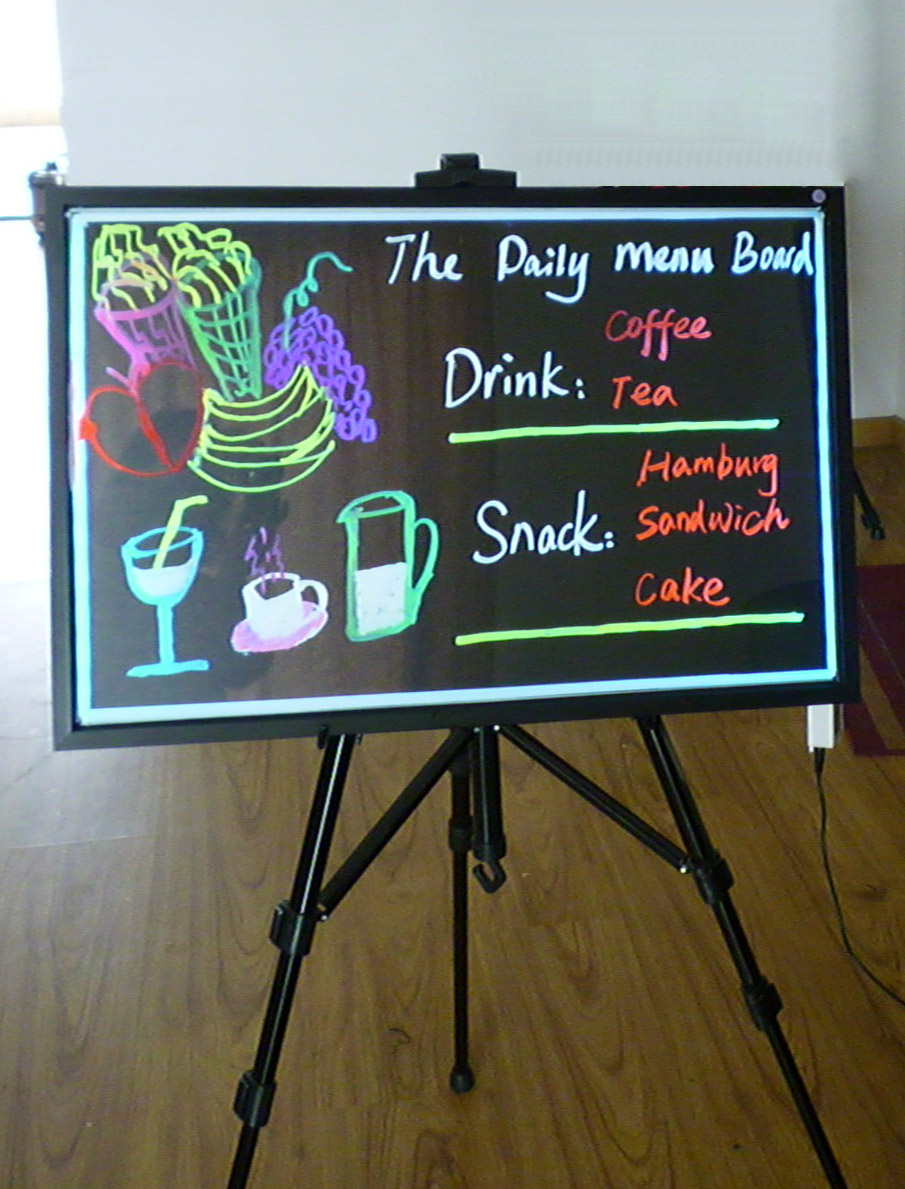 The Daily menu Board
Drink:
Coffee
Tea
Snack:
Hamburg
Sandwich
Cake